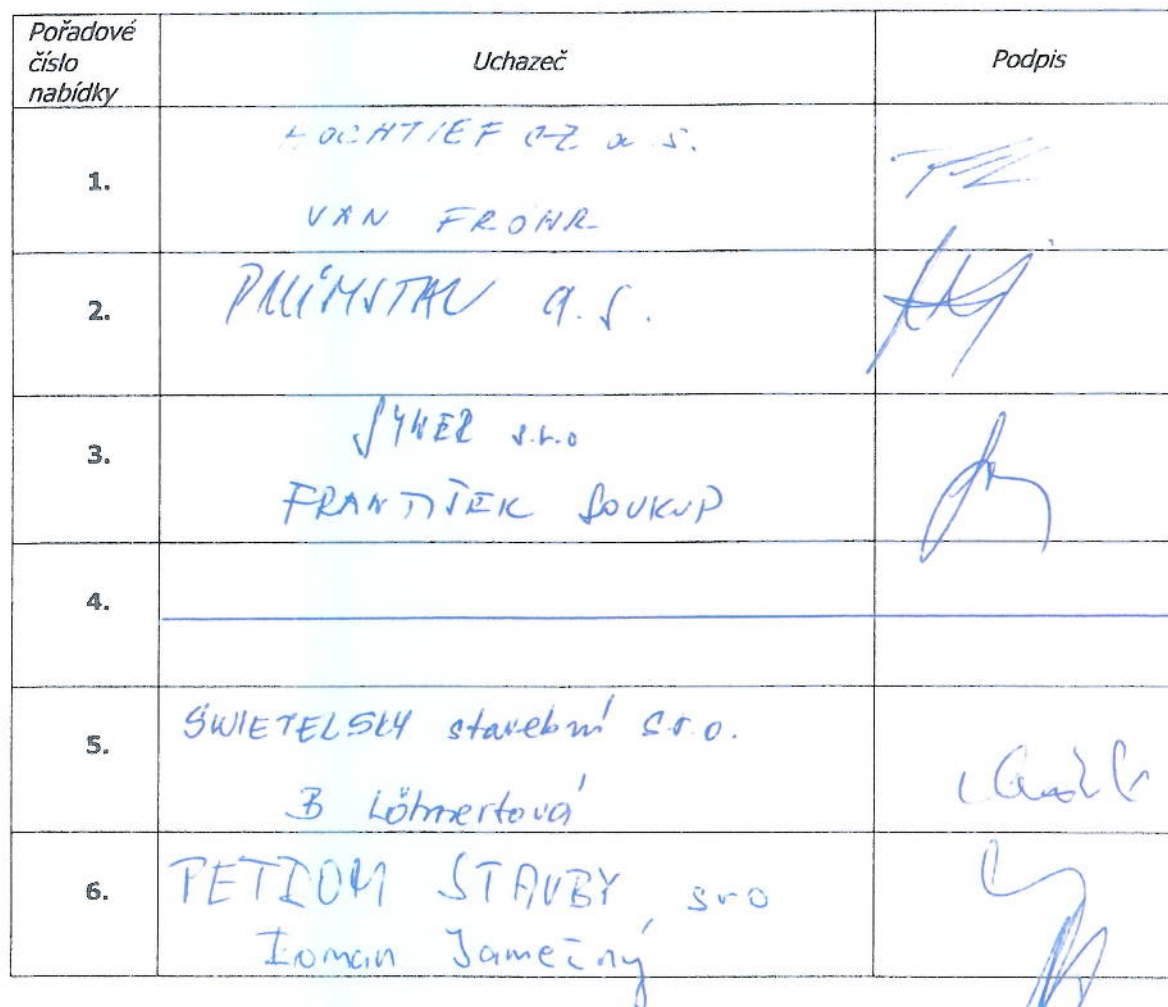 Pořadové
číslo
nabídky
Uchazeč
Podpis
1.
HOCHTIEF CZ a. s.
2.
PRŮMSTAV a.s.
3.
SYNER s.r.o
FRANTIŠEK SOUKUP
4.
5.
SWIETELSKY stavební s.r.o.
B Löhnertová
6.
PETDOM STAVBY, sro
Roman Jamečný